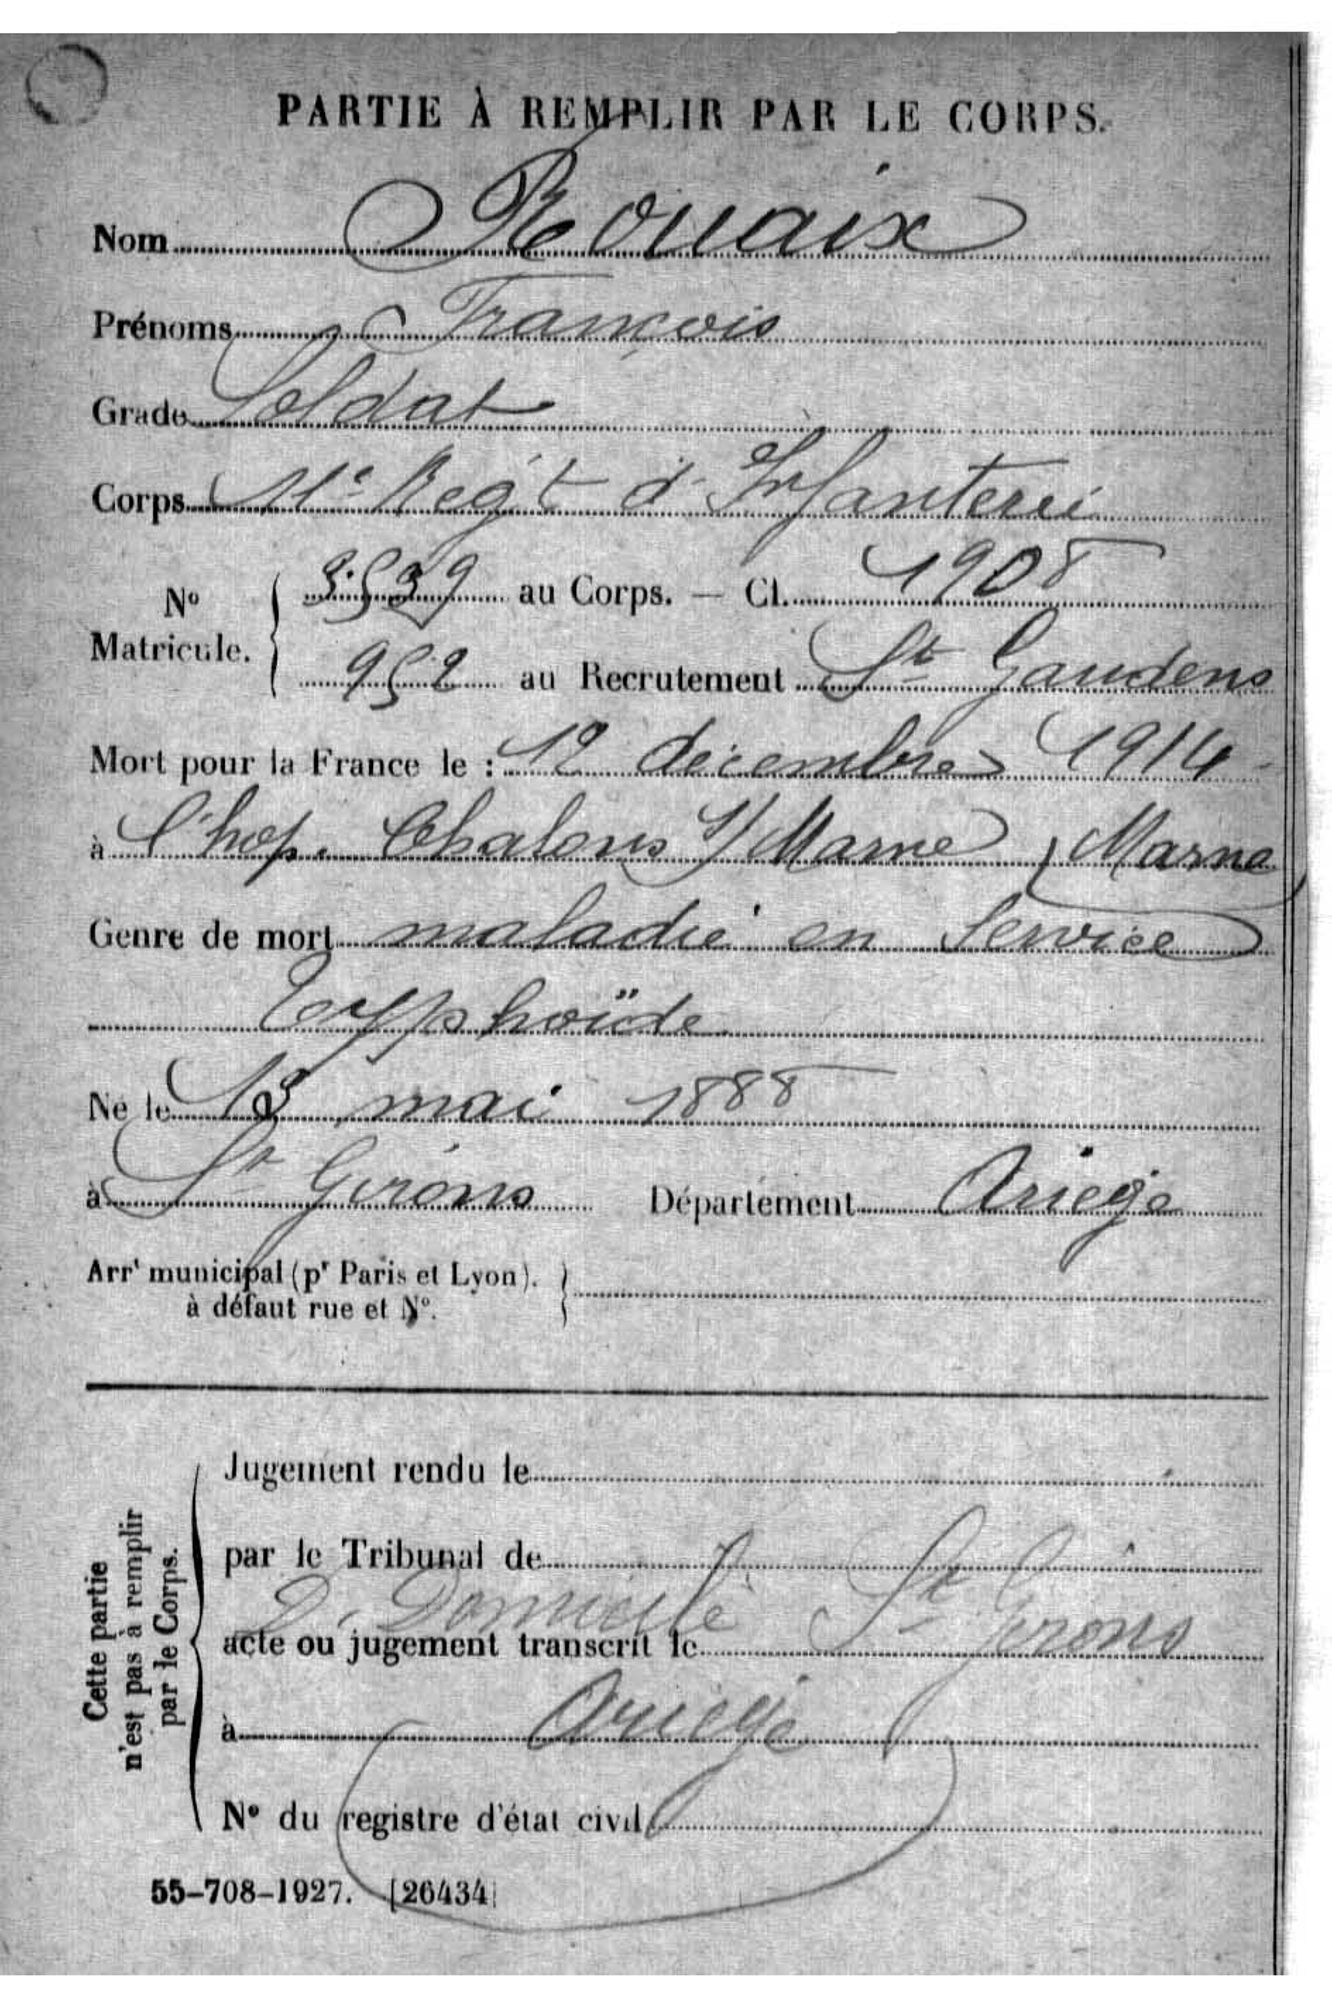 PARTIE À REMPLIR PAR LE CORPS.
Nom Rouaix
Prénoms François
Grade Soldat
Corps 11e Regt d'Infanterie
No Matricule. 3.539 au Corps. — Cl. 1908
952 au Recrutement St Gaudens
Mort pour la France le : 12 décembre 1914
à l'hop. Chalons s/ Marne, Marne
Genre de mort maladie en service
Typhoïde
Né le mai 1888
à St Girons Département Ariège
Arrt municipal (pr Paris et Lyon).
à défaut rue et No.
Cette partie
n'est pas à remplir
par le Corps.
Jugement rendu le
par le Tribunal de
D. Domicile St Girons
acte ou jugement transcrit le
à Ariège
No du registre d'état civil
55-708-1927. [26434]